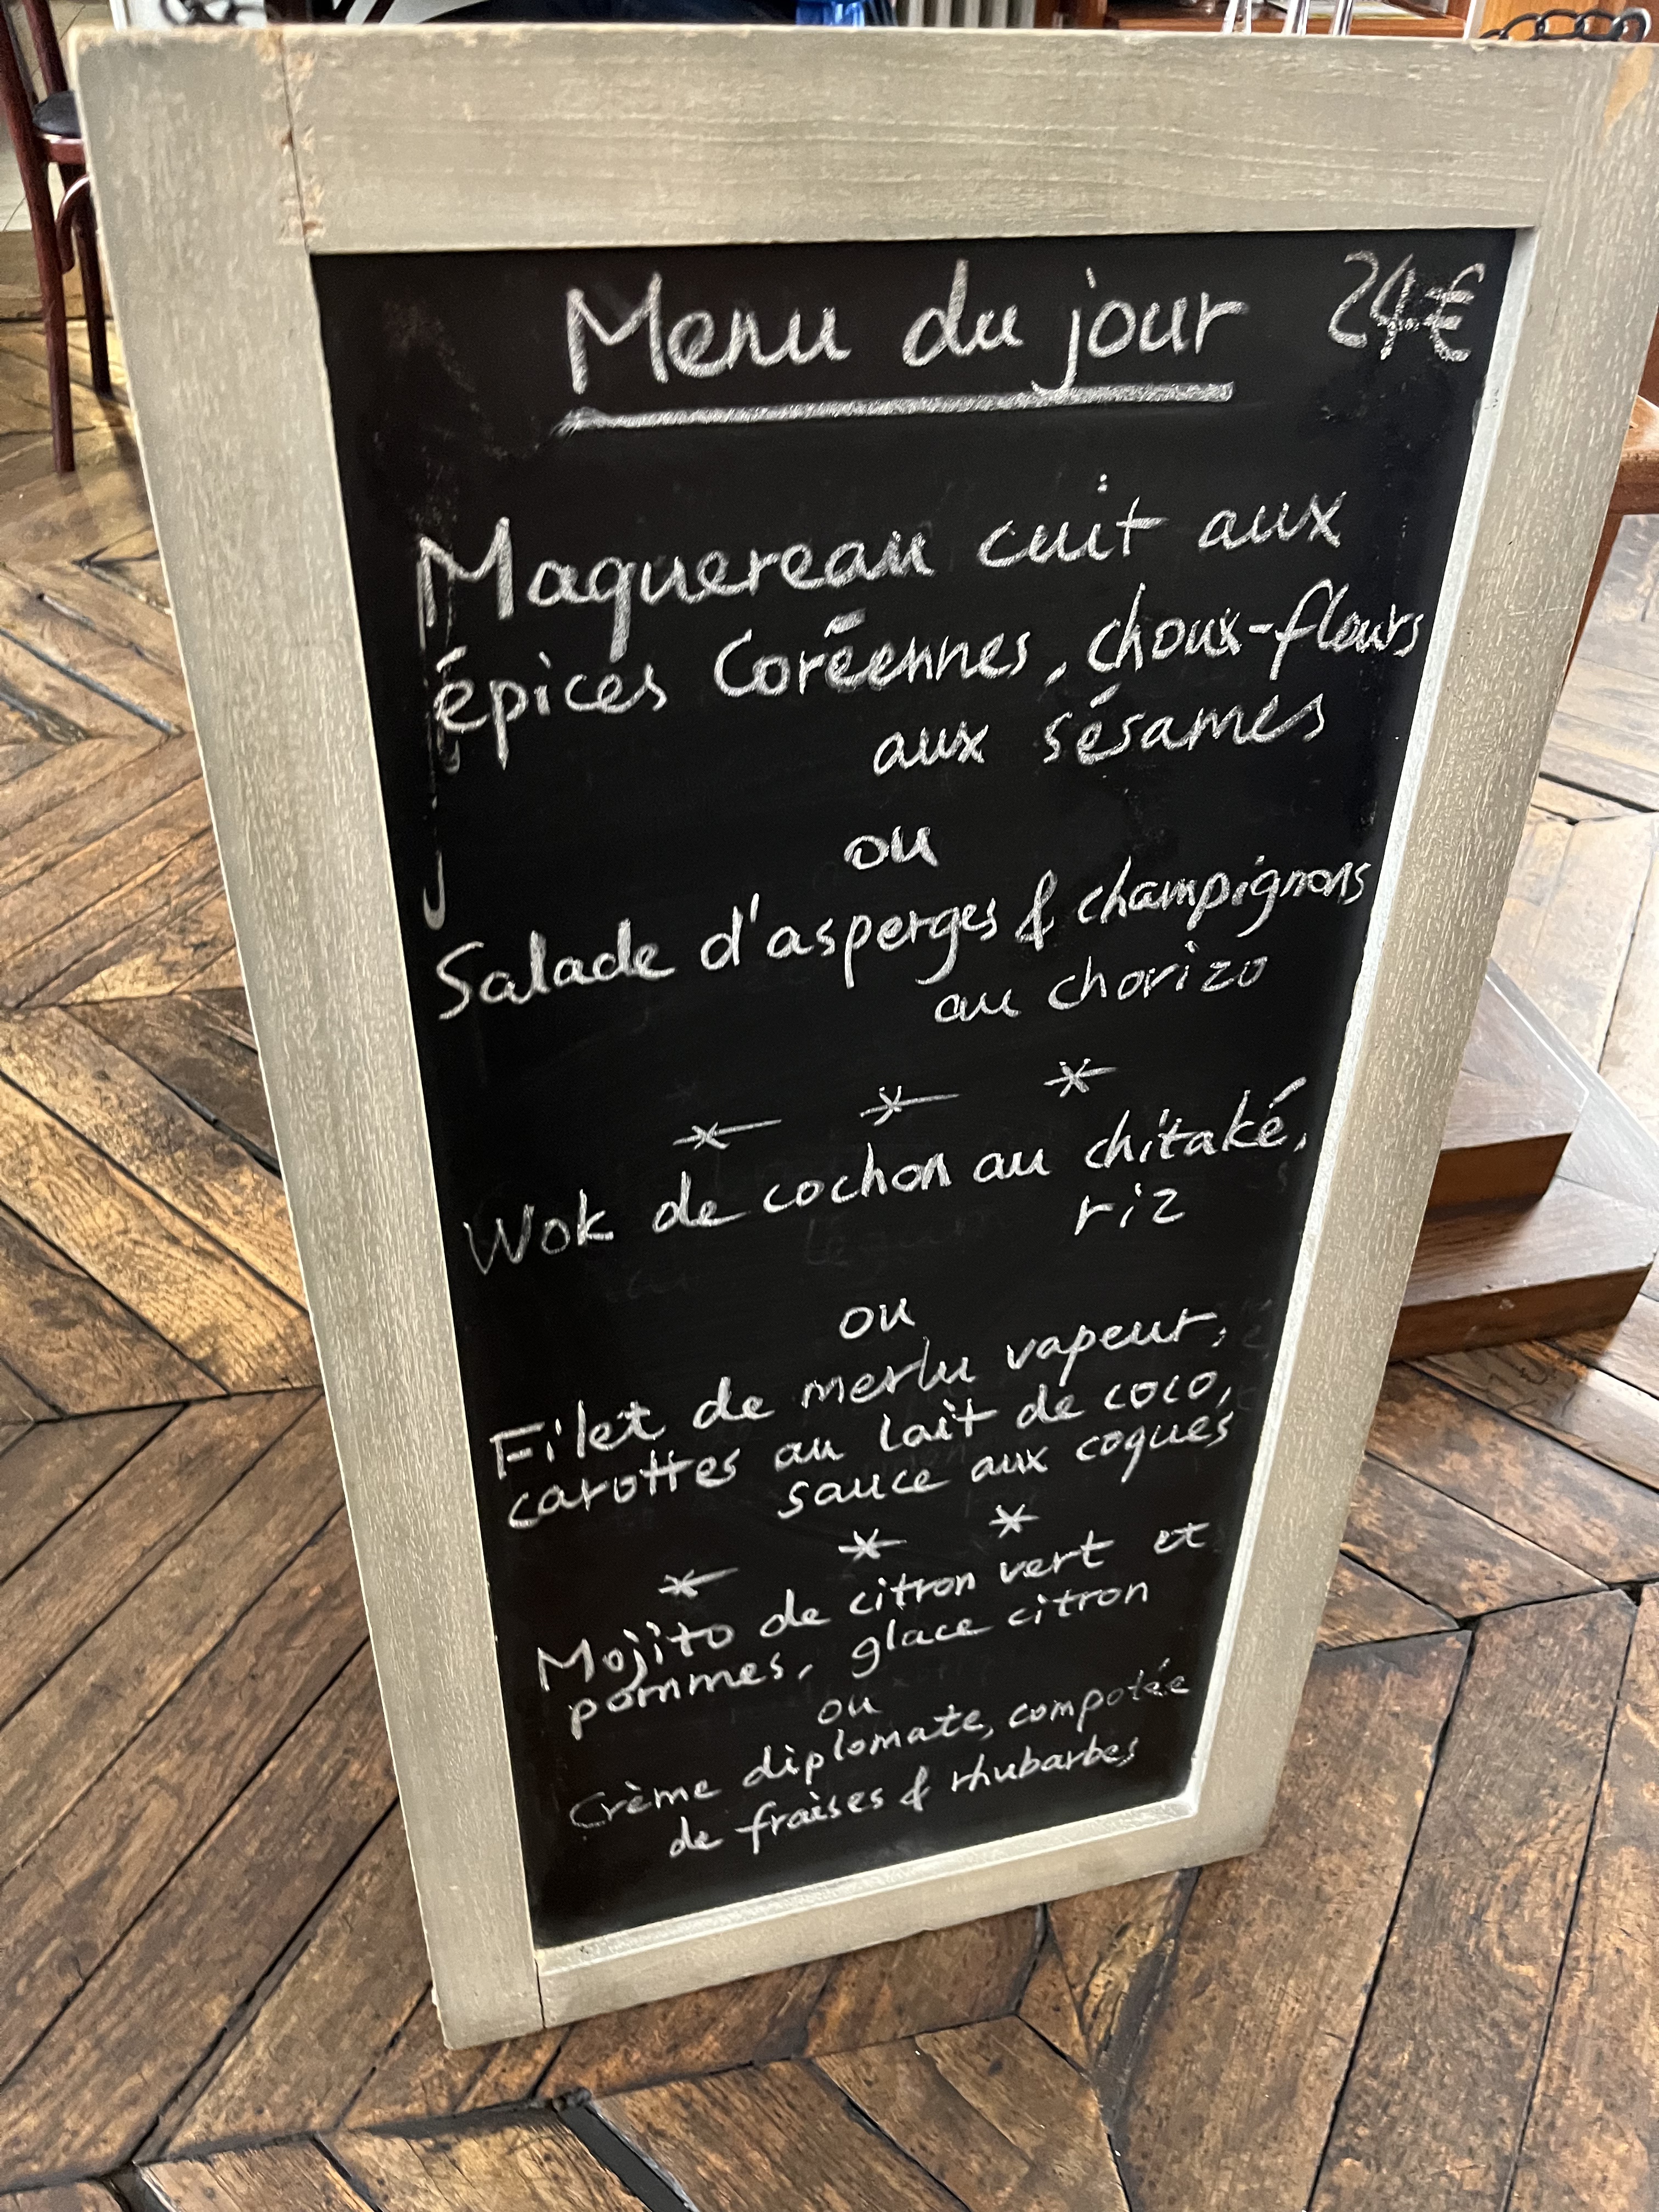 Menu du jour 24€
Maquereau cuit aux
épices Coréennes, choux-fleurs
aux sésames
ou
Salade d'asperges & champignons
au chorizo
* * *
Wok de cochon au chitaké,
riz
ou
Filet de merlu vapeur,
carottes au lait de coco,
sauce aux coques
* * *
Mojito de citron vert et
pommes, glace citron
ou
Crème diplomate, compotée
de fraises & rhubarbes